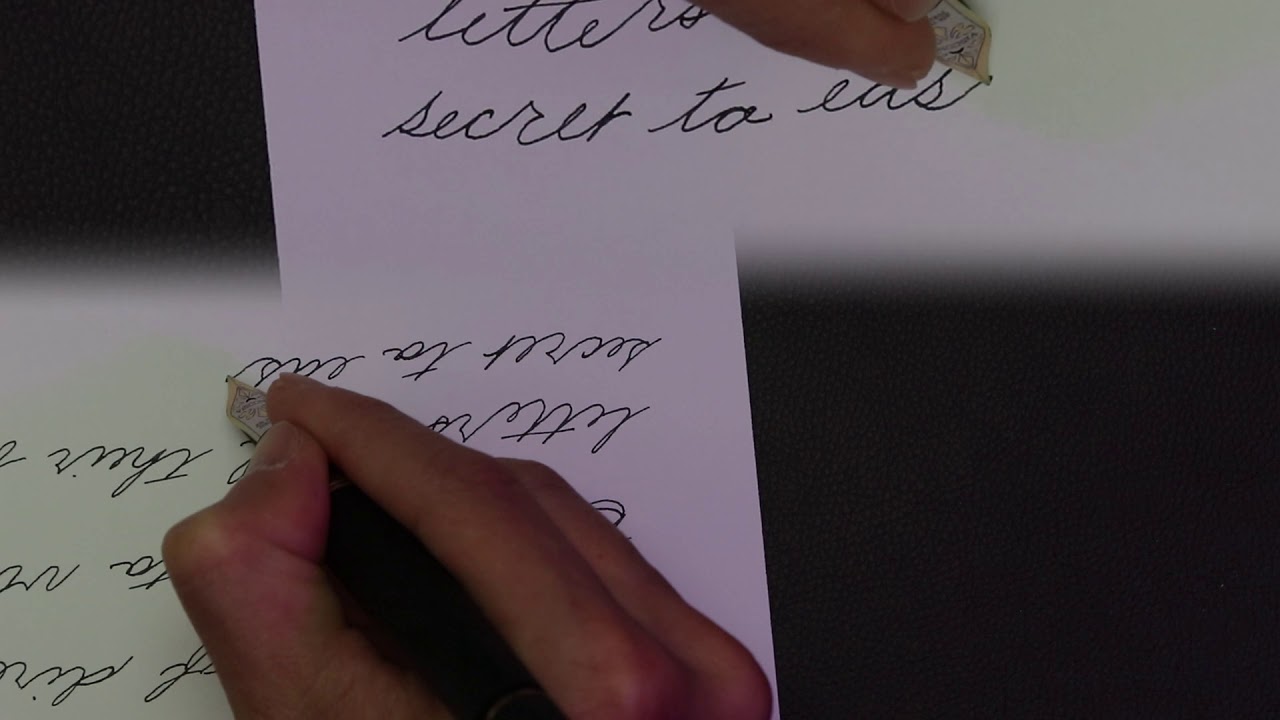 letters
secret to eas
secret to eas
letters
their
to